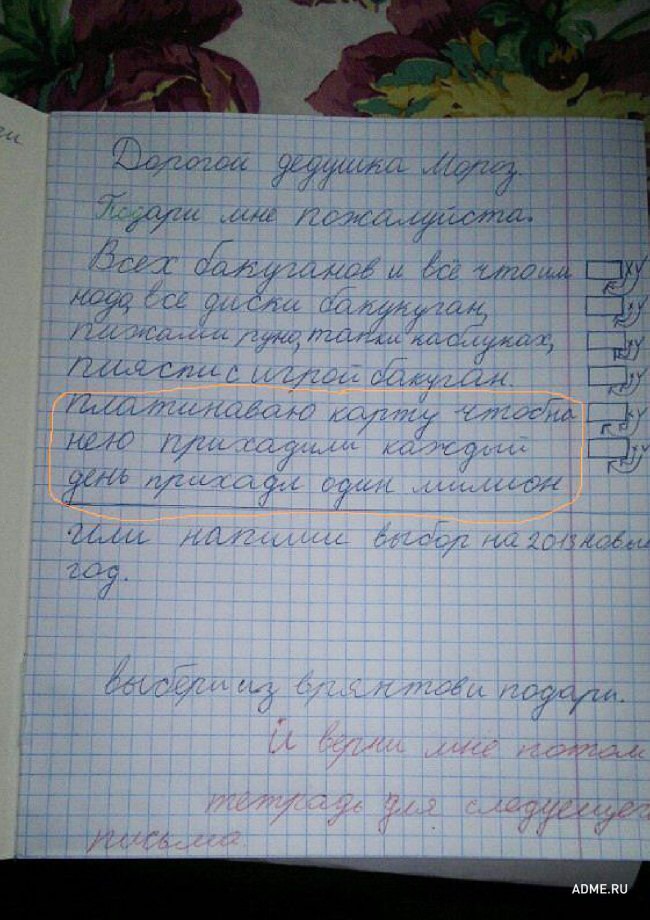 Дорогой дедушка Мороз.
Подари мне пожалуйста.
Всех бакуганов и всё что им
нода, все диски бакукуган,
пижами руно, тапки наблуках,
пияспи с игрой бакуган.
платинаваю карту чтоб на
нею прихадили каждый
день прихадл один милион
или напиши выбор на 2013 новый
год.
выбери из врянтов и подари.
И верни мне потом
тетрадь для следуещег
письма
ADME.RU